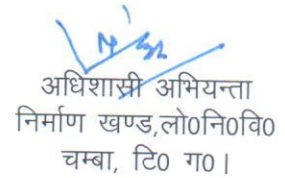 अधिशासी अभियन्ता
निर्माण खण्ड,लो0नि0वि0
चम्बा, टि0 ग0।